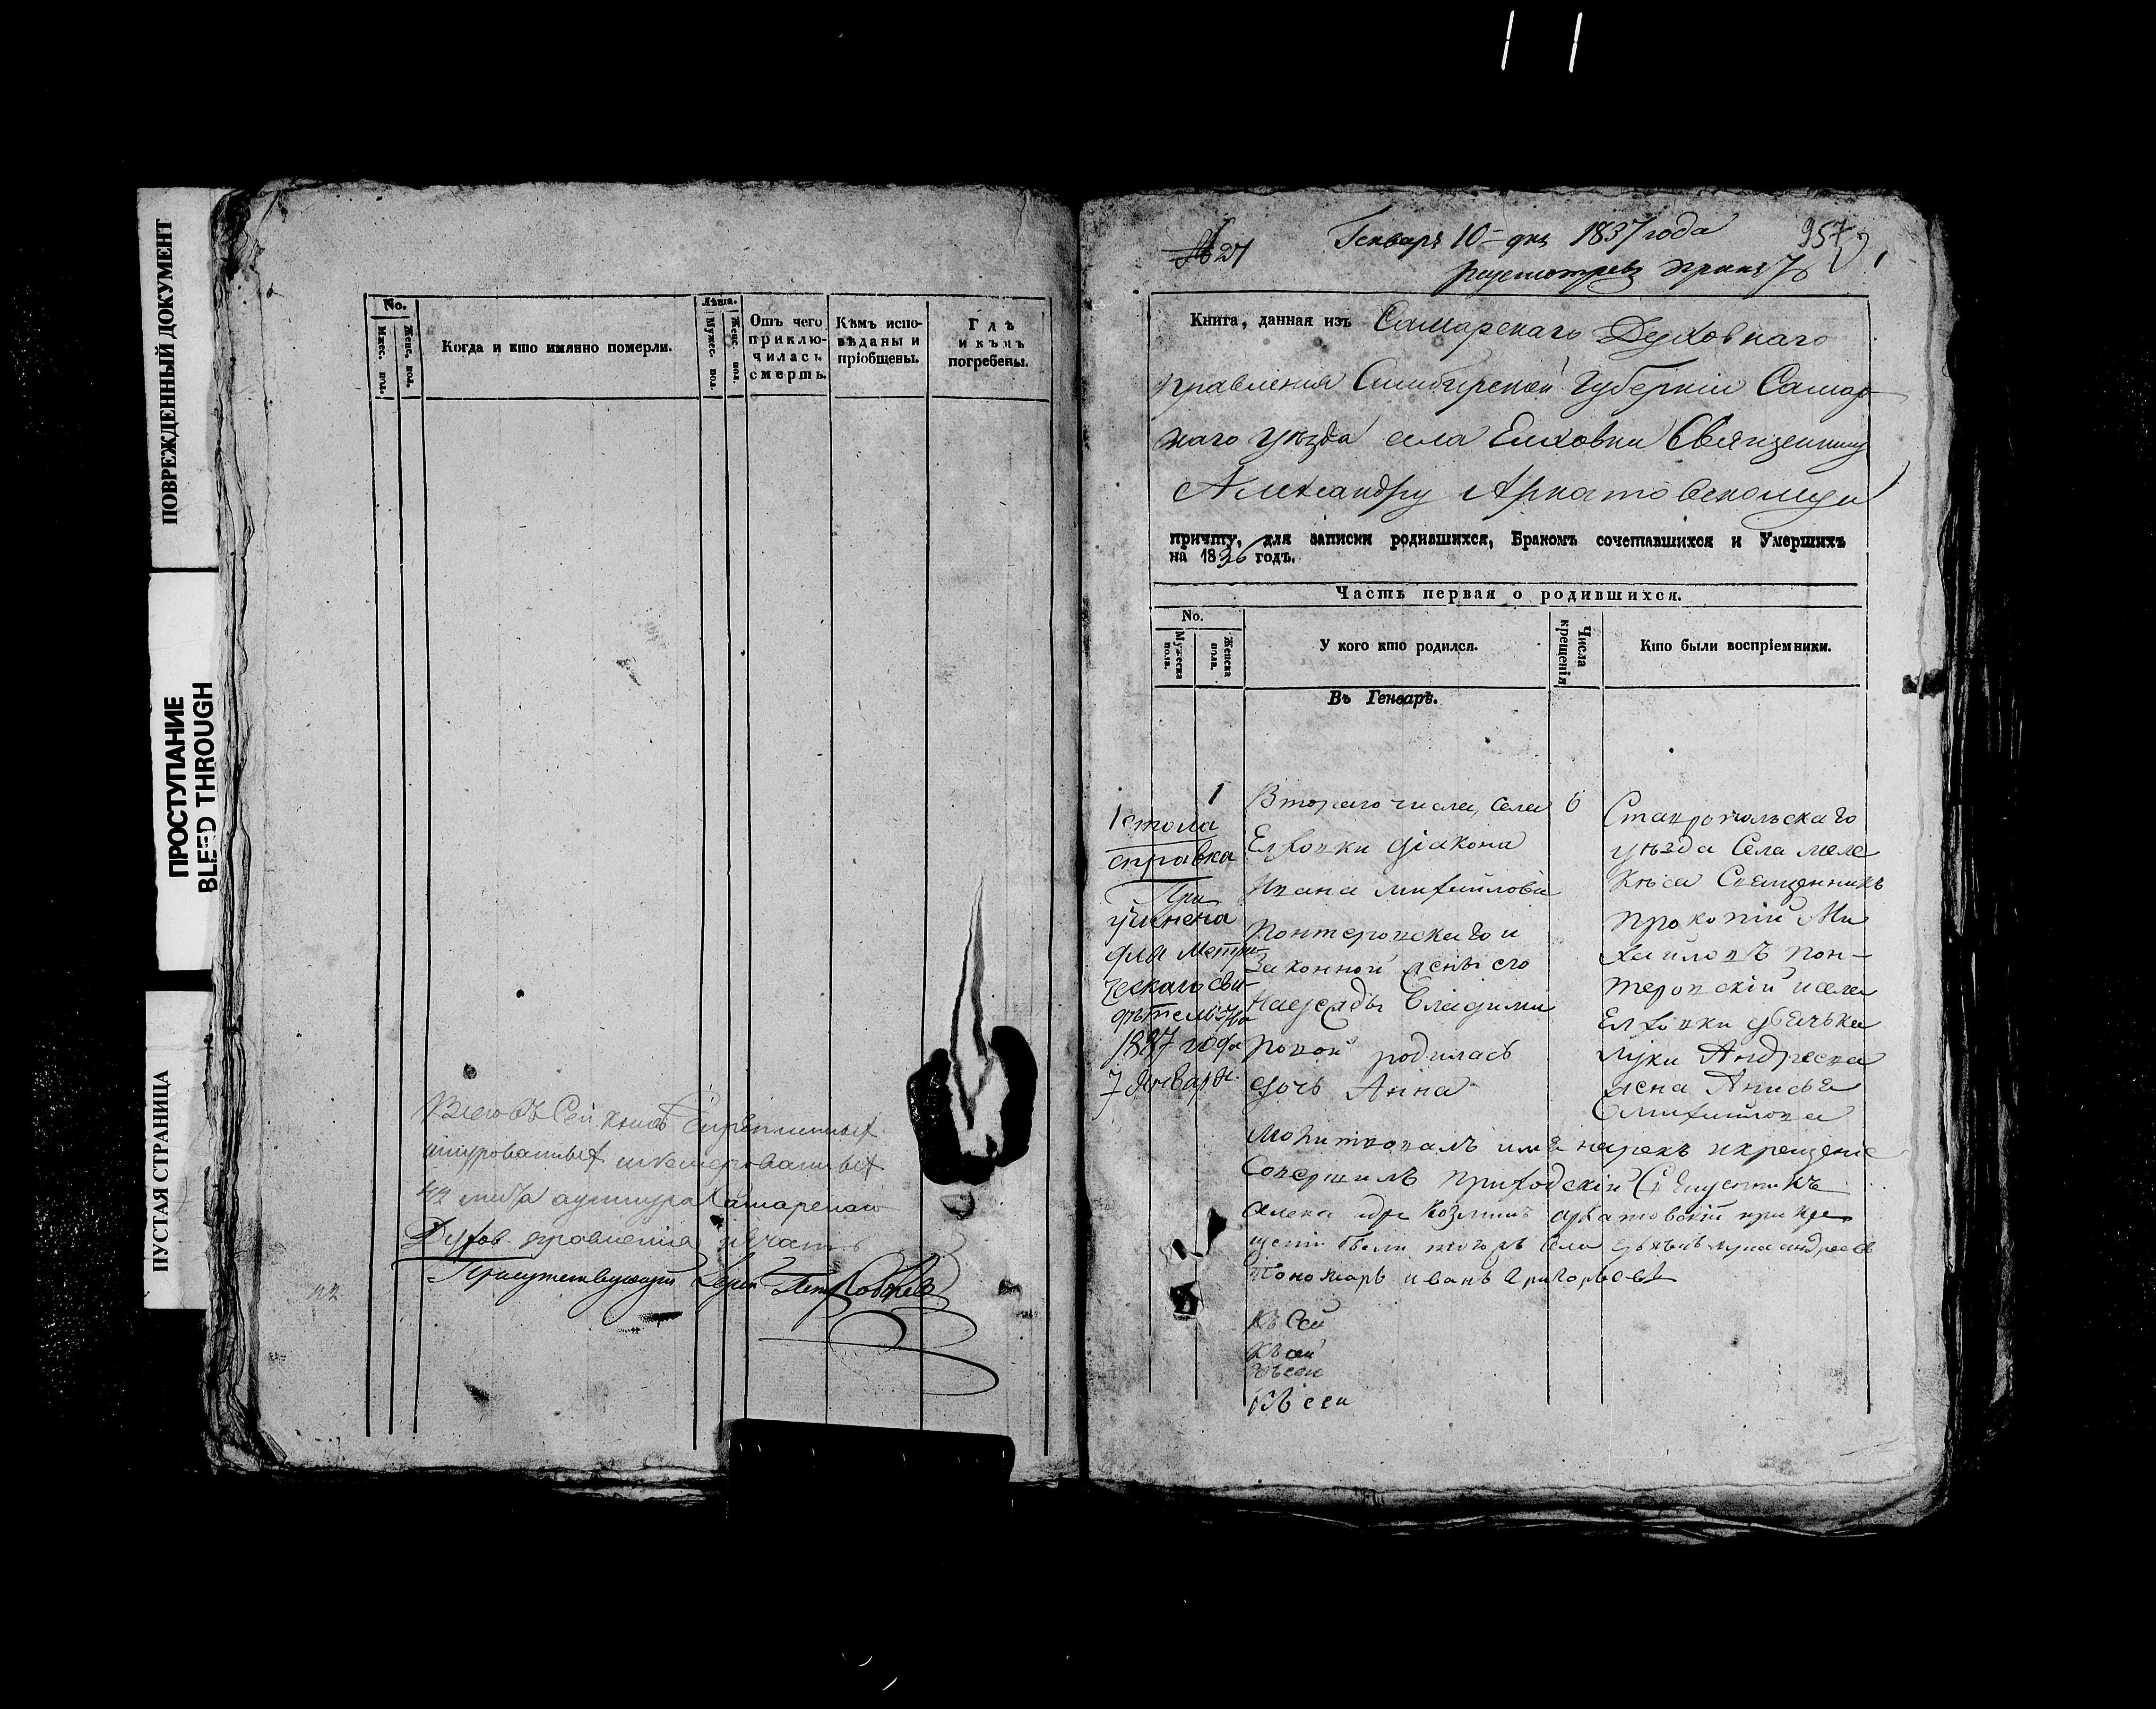 ПОВРЕЖДЕННЫЙ ДОКУМЕНТ
ПРОСТУПАНИЕ
BLEED THROUGH
ПУСТАЯ СТРАНИЦА
No.
Мужес. пол.
Женс. пол.
Когда и кто имянно померли.
Лѣта.
Мужес. пол.
Женс. пол.
Отъ чего
приклю-
чилась
смерть.
Кѣмъ испо-
вѣданы и
пріобщены.
Гдѣ
и кѣмъ
погребены.
Всего въ сей книгѣ скрѣпленныхъ
шнурованныхъ и нумерованныхъ
42 листа Самарскаго
Духов. правленія
Присутствующій Іерей Петръ
42
№ 21
Генваря 10 дня 1837 года
957
Книга, данная изъ Самарскаго Духовнаго
правленія Симбирской Губерніи Самар
скаго уѣзда села Елховки Священнику
Александру Архатовскому съ
причту, для записки родившихся, Бракомъ сочетавшихся и Умершихъ
на 1836 годъ.
Часть первая о родившихся.
No.
Мужеска пола.
Женска пола.
У кого кто родился.
Числа крещенія
Кто были воспріемники.
Въ Генварѣ.
1
Втораго числа, села
Елховки діакона
Ивана Михайлова
Понтеровскаго и
Законной жены его
Владими
ровой родилась
дочь Анна
6
Ставропольскаго
уѣзда Села Меле
кеса Священникъ
Прокопій Ми
хайловъ Пон-
теровскій и села
Елховки дьячька
Луки Андреева
жена Анисья
Михайлова
1 стола
справка
учинена
для Метри-
ческаго сви-
дѣтельства
1887 года
7 Января.
Молитвовалъ имя нарекъ и крещеніе
Совершилъ приходскій Священникъ
Александръ Козминъ Архатовскій при кре
щеніи были тогожъ села дьячекъ Лука Андреевъ
Пономарь Иванъ Григорьевъ
Къ сей
Къ сей
Къ сей
Къ сей